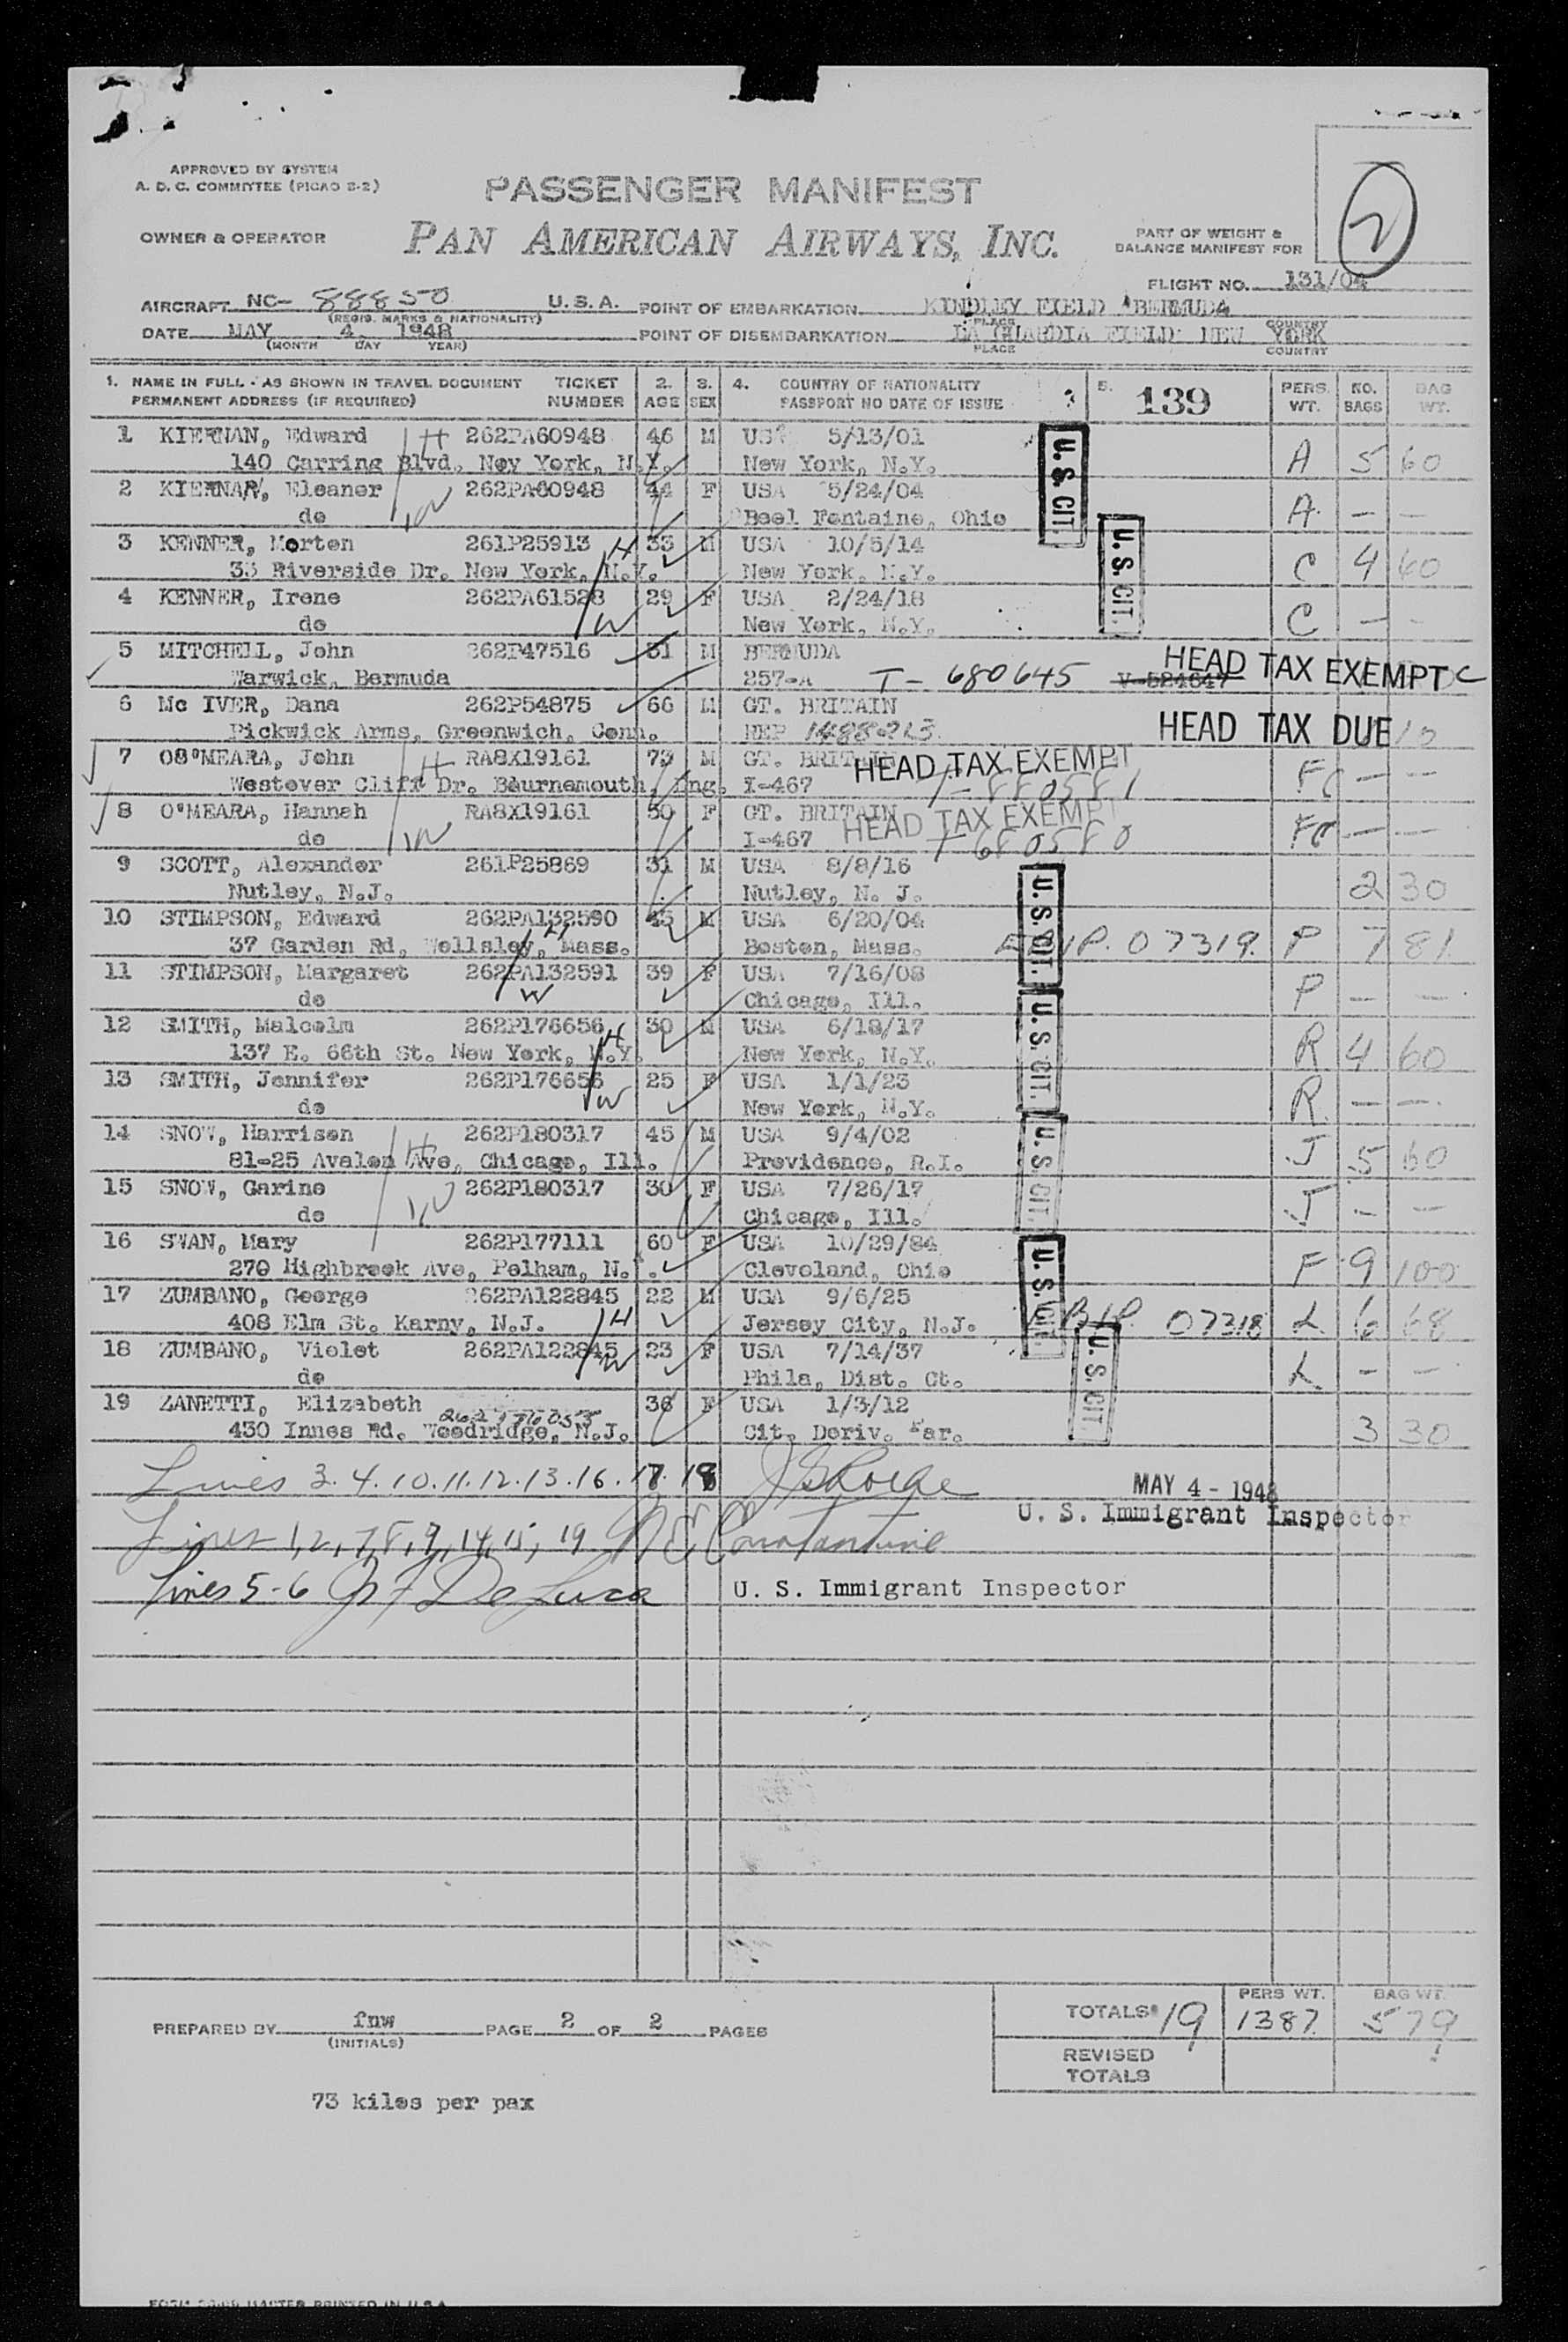 APPROVED BY SYSTEM
A. D. C. COMMITTEE (PICAO S-2)
PASSENGER MANIFEST
2
OWNER & OPERATOR
PAN AMERICAN AIRWAYS, INC.
PART OF WEIGHT &
BALANCE MANIFEST FOR
FLIGHT NO. 131/04
AIRCRAFT NC- 88850 U.S.A. POINT OF EMBARKATION KINDLEY FIELD BERMUDA
(REGIS. MARKS & NATIONALITY) PLACE COUNTRY
DATE MAY 4 1948 POINT OF DISEMBARKATION LA GUARDIA FIELD NEW YORK
(MONTH DAY YEAR) PLACE COUNTRY
1. NAME IN FULL - AS SHOWN IN TRAVEL DOCUMENT TICKET 2. 3. 4. COUNTRY OF NATIONALITY 5. 139 PERS. NO. BAG
PERMANENT ADDRESS (IF REQUIRED) NUMBER AGE SEX PASSPORT NO DATE OF ISSUE WT. BAGS WT.
1 KIERNAN, Edward H 262PA60948 46 M US 5/13/01 U.S. CIT.
140 Carring Blvd, Noy York, N.Y. New York, N.Y. A 5 60
2 KIERNAN, Eleanor W 262PA60948 44 F USA 5/24/04
do Beel Fontaine, Ohio A - -
3 KENNER, Morton 261P25913 H 33 M USA 10/5/14 U.S. CIT.
33 Riverside Dr. New York, N.Y. New York, N.Y. C 4 60
4 KENNER, Irene 262PA61528 29 F USA 2/24/18
do W New York, N.Y. C - -
5 MITCHELL, John 262P47516 31 M BERMUDA HEAD TAX EXEMPT
Warwick, Bermuda 257-A T-680645 V-524647 C
6 Mc IVER, Dana 262P54875 66 M GT. BRITAIN HEAD TAX DUE
Pickwick Arms, Greenwich, Conn. REP 1488213
7 O8'MEARA, John H RA8X19161 73 M GT. BRITAIN HEAD TAX EXEMPT
Westover Cliff Dr. Bournemouth, Eng. I-467 T-880581 - -
8 O'MEARA, Hannah RA8X19161 50 F GT. BRITAIN HEAD TAX EXEMPT
do W I-467 T 680580 - -
9 SCOTT, Alexander 261P25869 31 M USA 8/8/16 U.S. CIT.
Nutley, N.J. Nutley, N. J. 2 30
10 STIMPSON, Edward 262PA132590 45 M USA 6/20/04
37 Garden Rd, Wellsley, Mass. H Boston, Mass. 07319. P 7 81
11 STIMPSON, Margaret 262PA132591 39 F USA 7/16/08
do W Chicago, Ill. P - -
12 SMITH, Malcolm 262P176656 H 30 M USA 6/18/17 U.S. CIT.
137 E. 66th St. New York, N.Y. New York, N.Y. R 4 60
13 SMITH, Jennifer 262P176656 25 F USA 1/1/23
do W New York, N.Y. R - -
14 SNOW, Harrison 262P180317 45 M USA 9/4/02 U.S. CIT.
81-25 Avalon Ave, Chicago, Ill. H Providence, R.I. J 5 60
15 SNOW, Garine 262P180317 30 F USA 7/26/17
do W Chicago, Ill. J - -
16 SWAN, Mary 262P177111 60 F USA 10/29/84 U.S. CIT.
270 Highbrook Ave, Pelham, N. Cleveland, Ohio F 9 100
17 ZUMBANO, George 262PA122845 22 M USA 9/6/25
408 Elm St. Karny, N.J. H Jersey City, N.J. 07318 L 6 68
18 ZUMBANO, Violet 262PA122845 23 F USA 7/14/37 U.S. CIT.
do W Phila, Dist. Ct. L - -
19 ZANETTI, Elizabeth 36 F USA 1/3/12
430 Innes Rd. Woodridge, N.J. Cit. Deriv. Par. 3 30
Lines 3.4.10.11.12.13.16.17.18 MAY 4 - 1948
U. S. Immigrant Inspector
Lines 1,2,7,8,9,14,15,19 Constantine
Lines 5-6 De Luca U. S. Immigrant Inspector
PREPARED BY fnw PAGE 2 OF 2 PAGES
(INITIALS)
PERS WT. BAG WT.
TOTALS 19 1387 579
REVISED
TOTALS
73 kilos per pax